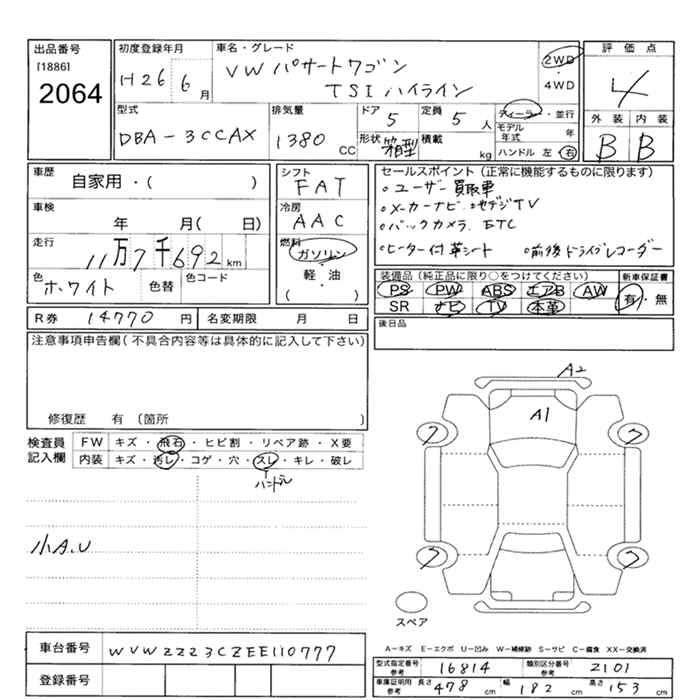 出品番号
[1886]
2064
初度登録年月
H26 6月
車名・グレード
VW パサートワゴン
TSI ハイライン
2WD
4WD
評価点
4
外装 内装
B B
型式
DBA-3CCAX
排気量
1380 CC
ドア 5
定員 5 人
形状 箱型
積載 kg
ディーラー・並行
モデル年式 年
ハンドル 左・右
車歴
自家用・( )
車検
年 月( 日)
走行
11万7千692 km
色 ホワイト
色替
色コード
シフト
FAT
冷房
AAC
燃料
ガソリン
軽・油
( )
セールスポイント(正常に機能するものに限ります)
・ユーザー買取車
・メーカーナビ、地デジTV
・バックカメラ、ETC
・ヒーター付革シート ・前後ドライブレコーダー
装備品(純正品に限り○をつけてください)
PS PW ABS エアB AW
SR ナビ TV 本革
新車保証書
有・無
R券 14770 円
名変期限 月 日
後日品
注意事項申告欄(不具合内容等は具体的に記入して下さい)
修復歴 有(箇所 )
検査員記入欄
FW キズ・飛石・ヒビ割・リペア跡・X要
内装 キズ・汚レ・コゲ・穴・スレ・キレ・破レ
ハンドル
小A、U
A2
A1
スペア
A-キズ E-エクボ U-凹み W-補修跡 S-サビ C-腐食 XX-交換済
車台番号 WVWZZZ3CZEE110777
登録番号
型式指定番号 参考 16814
類別区分番号 参考 2101
車庫証明用 参考 長さ 478 cm 幅 182 cm 高さ 153 cm